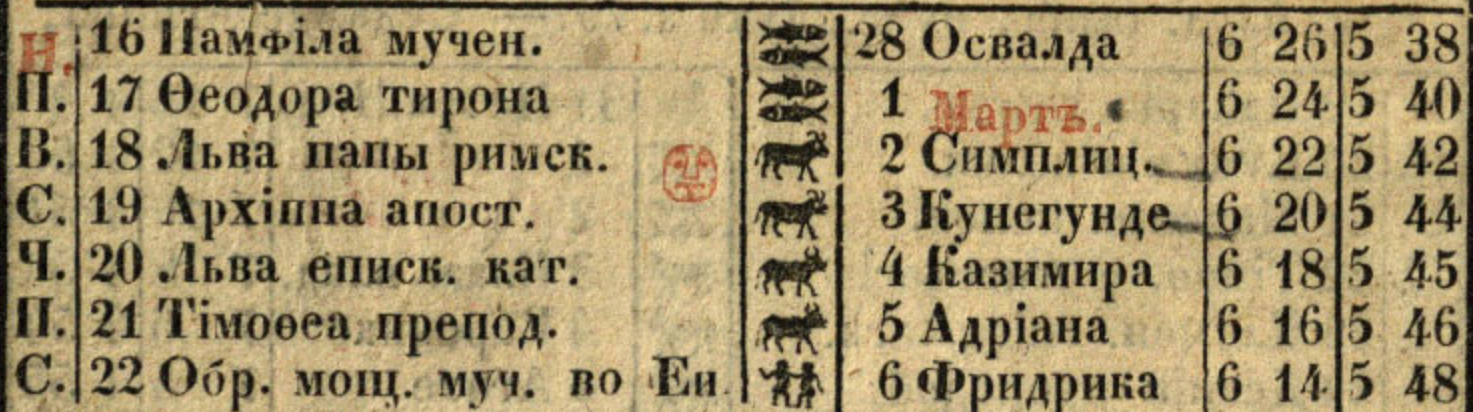 Н. 16 Памфіла мучен. 28 Освалда 6 26 5 38
П. 17 Ѳеодора тирона 1 Мартъ. 6 24 5 40
В. 18 Льва папы римск. 2 Симплиц. 6 22 5 42
С. 19 Архіппа апост. 3 Кунегунде 6 20 5 44
Ч. 20 Льва еписк. кат. 4 Казимира 6 18 5 45
П. 21 Тімоѳеа препод. 5 Адріана 6 16 5 46
С. 22 Обр. мощ. муч. во Еи 6 Фридрика 6 14 5 48